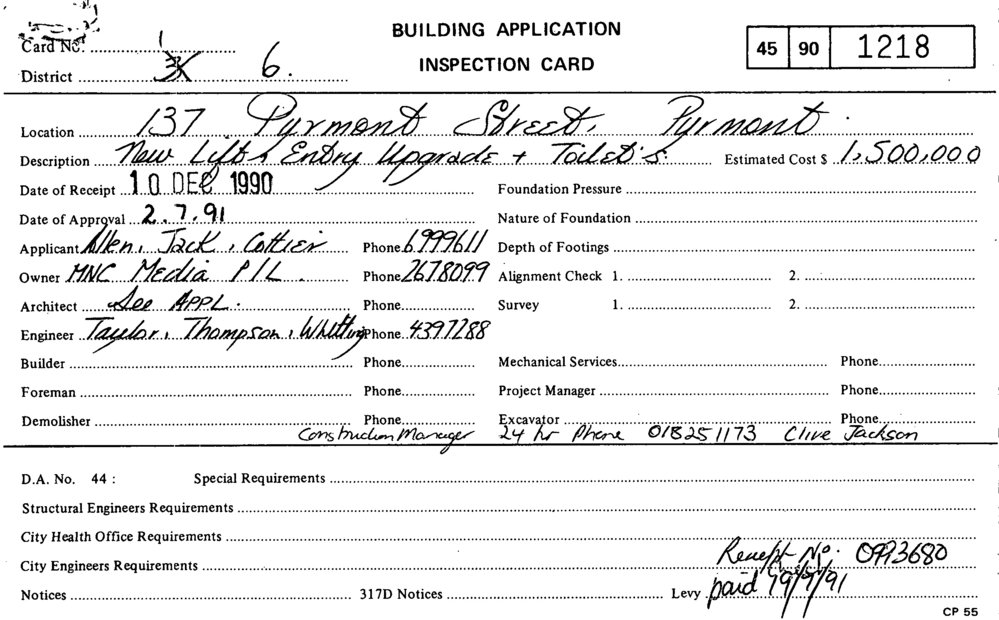 BUILDING APPLICATION
INSPECTION CARD
45 90 1218
Card No. 1
District 6.
Location 137 Pyrmont Street, Pyrmont.
Description New Lift, Entry Upgrade + Toilet's. Estimated Cost $ 1,500,000
Date of Receipt 10 DEC 1990 Foundation Pressure
Date of Approval 2.7.91 Nature of Foundation
Applicant Allen, Jack, Cottier Phone 6999611 Depth of Footings
Owner MNC Media P/L. Phone 2678099 Alignment Check 1. 2.
Architect See APPL. Phone Survey 1. 2.
Engineer Taylor, Thompson, Whitting Phone 4397288
Builder Phone Mechanical Services Phone
Foreman Phone Project Manager Phone
Demolisher Phone Excavator Phone
Construction Manager 24 hr Phone 018251173 Clive Jackson
D.A. No. 44 : Special Requirements
Structural Engineers Requirements
City Health Office Requirements
City Engineers Requirements
Receipt No. 0993680
Notices 317D Notices Levy paid
CP 55